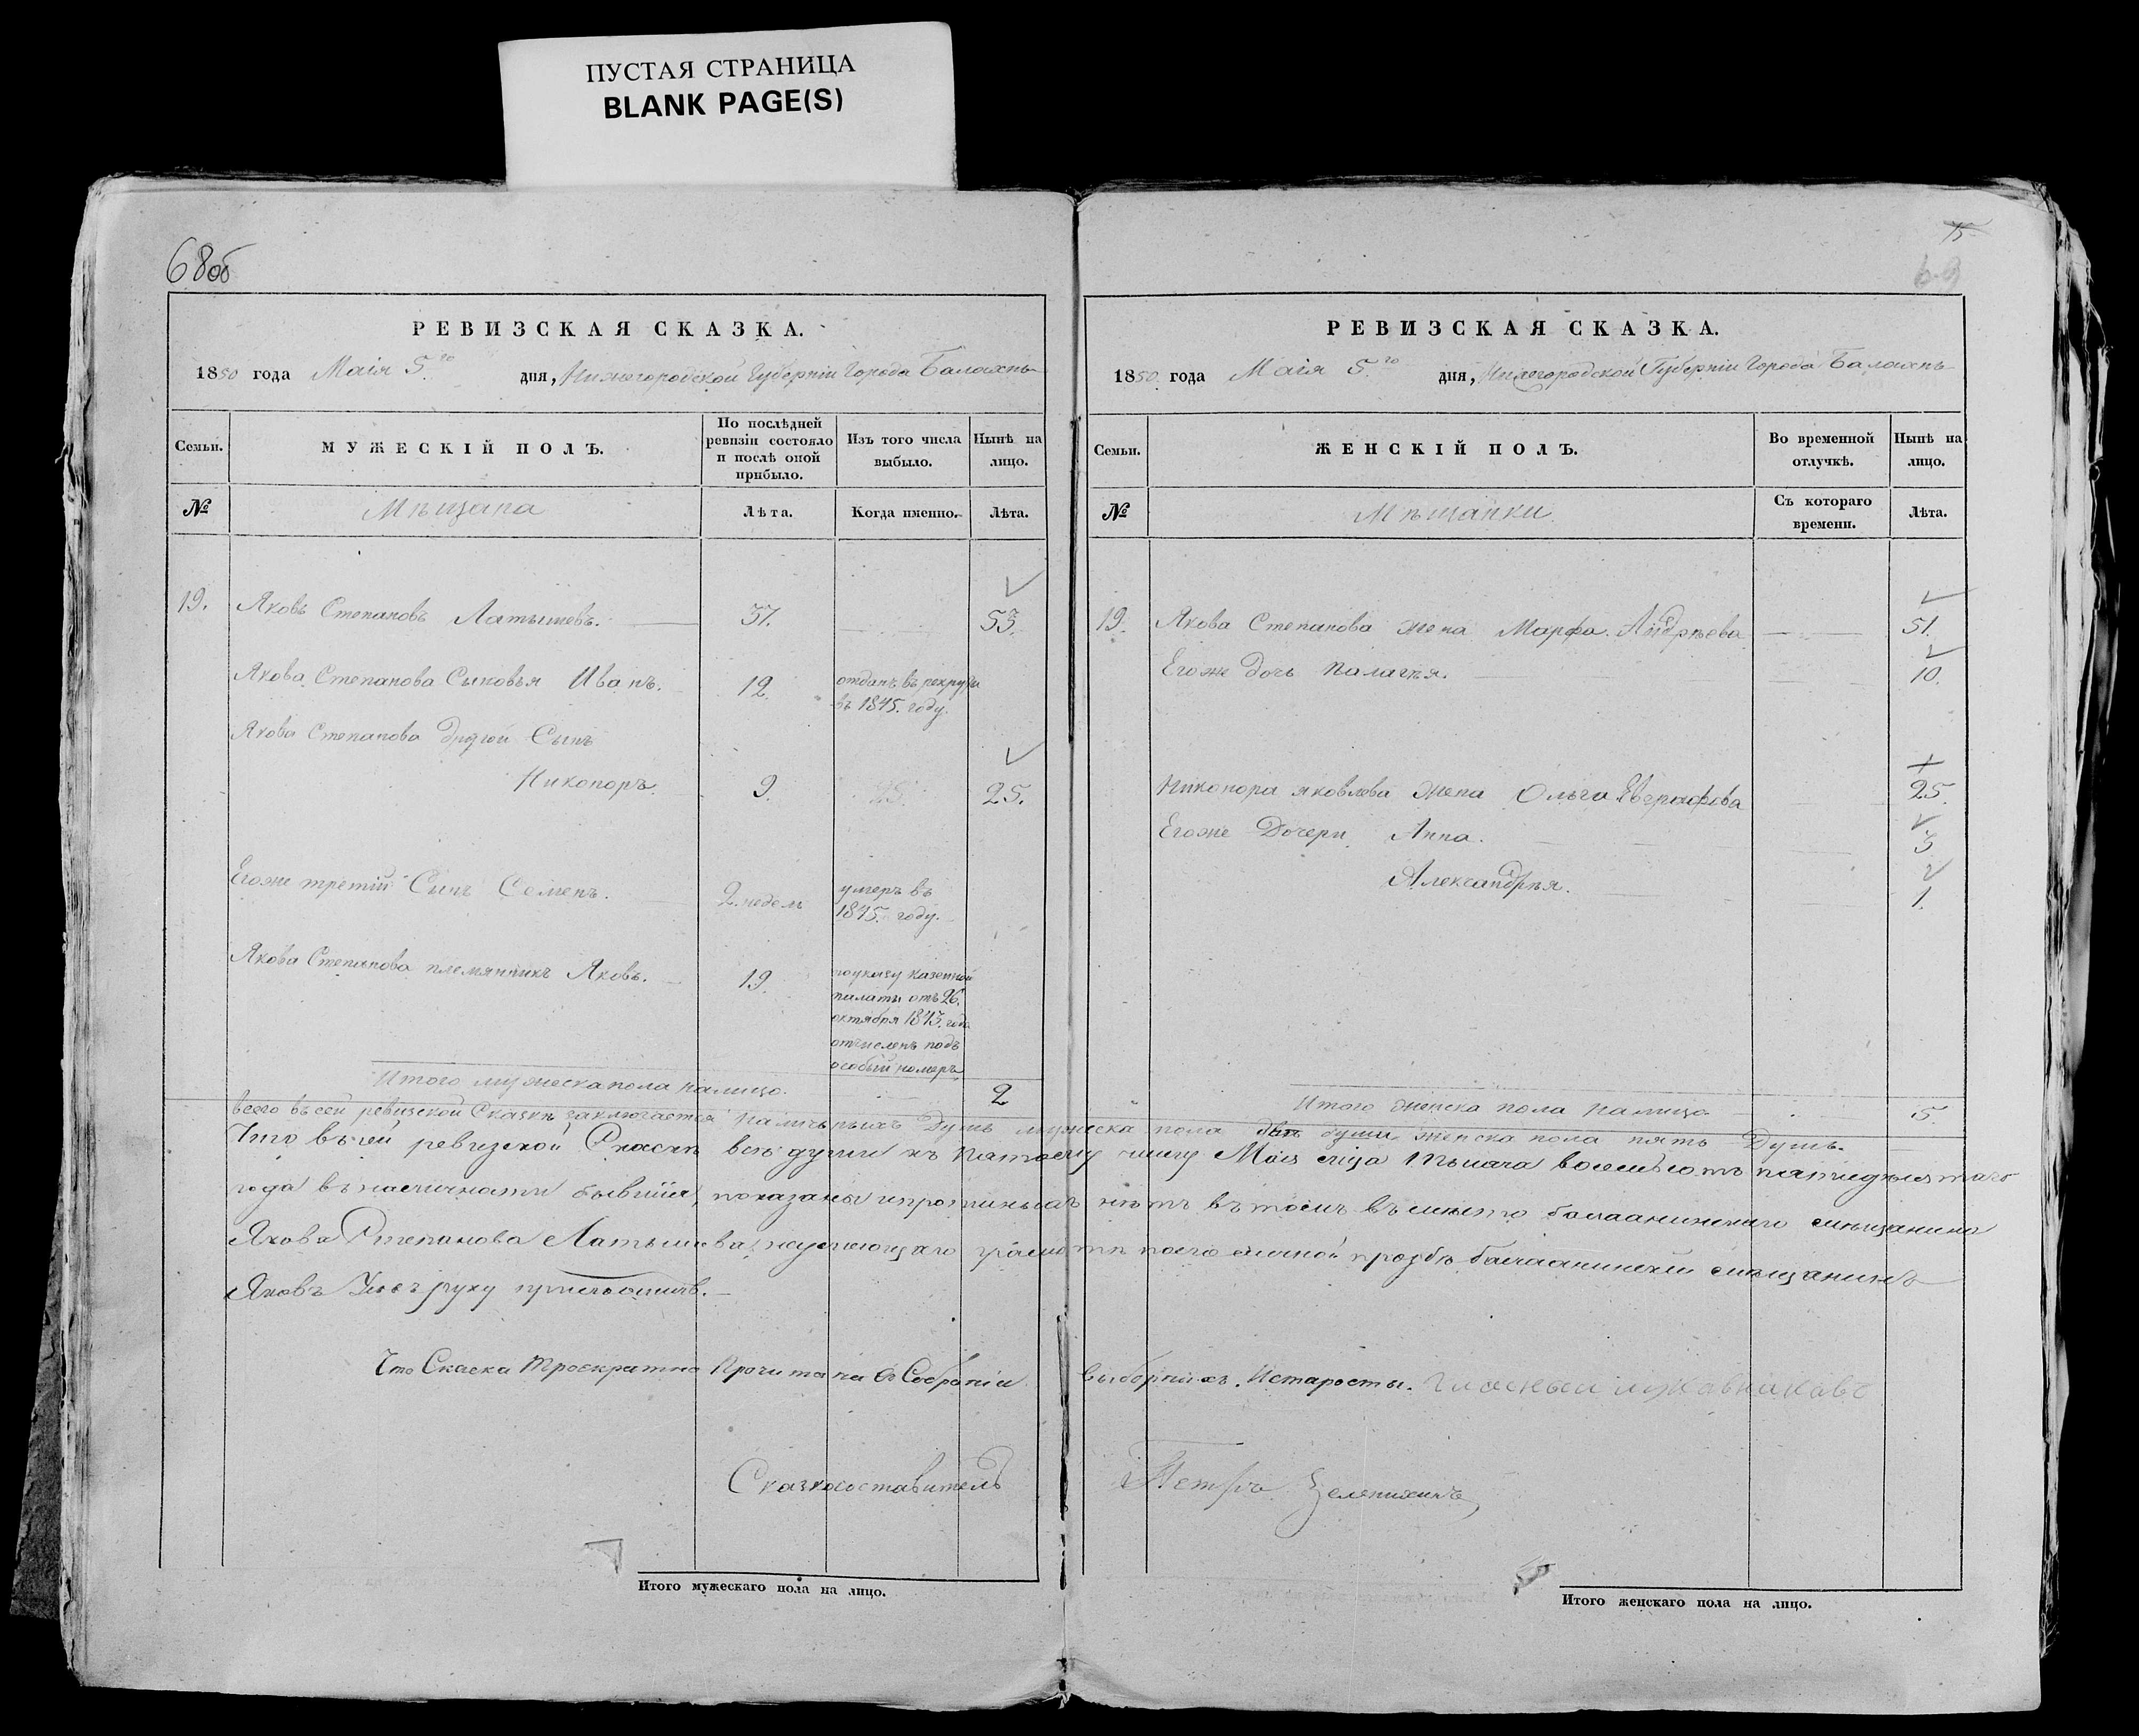 ПУСТАЯ СТРАНИЦА
BLANK PAGE(S)
68об
РЕВИЗСКАЯ СКАЗКА.
1850 года Маія 5го дня, Нижегородской Губерніи Города Балахны
Семьи.
МУЖЕСКІЙ ПОЛЪ.
По послѣдней
ревизіи состояло
и послѣ оной
прибыло.
Изъ того числа
выбыло.
Нынѣ на
лицо.
№
Мѣщана
Лѣта.
Когда именно.
Лѣта.
19. Яковъ Степановъ Латышевъ. 37. 53.
Якова Степанова Сыновья Иванъ. 12. отданъ въ рекруты
въ 1845. году.
Якова Степанова другой Сынъ
Никоноръ. 9. 25.
Егоже третій Сынъ Семенъ. 2. недель умеръ въ
1845. году.
Якова Степанова племянникъ Яковъ. 19. поуказу казенной
палаты отъ 26.
октября 1843. года
отчисленъ подъ
особый номеръ
Итого мужеска пола налицо. 2
15
69
РЕВИЗСКАЯ СКАЗКА.
1850 года Маія 5го дня, Нижегородской Губерніи Города Балахны
Семьи.
ЖЕНСКІЙ ПОЛЪ.
Во временной
отлучкѣ.
Нынѣ на
лицо.
№
Мѣщанки
Съ котораго
времени.
Лѣта.
19. Якова Степанова жена Марфа Андрѣева 51.
Егоже дочь Палагѣя. 10.
Никонора яковлева жена Ольга 25.
Егоже Дочери Анна. 3
Александрѣя. 1.
Итого женска пола налицо 5.
всего въсей ревизской Сказкѣ заключается Душъ мужеска пола двѣ души женска пола пять Душъ.
Что въсей ревизской Скаскѣ всѣ души къ пятому числу Маія мца тысяча восемьсотъ пятидесятаго
года въналичности бывшія, показаны ипрописныхъ нѣтъ въ томъ въмѣсто балахнинскаго мѣщанина
Якова Степанова Латышева, неумеющаго грамотѣ поего личной прозбѣ балахнинский мѣщанинъ
Яковъ руку приложилъ.
Что Скаска Троекратно Прочитана въ Собраніи выборныхъ. Истаросты.
Сказкосоставитель Петръ Зеленихинъ
Итого мужескаго пола на лицо.
Итого женскаго пола на лицо.